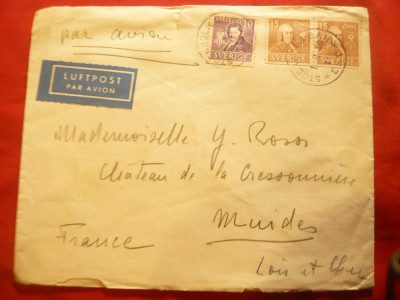 par avion
LUFTPOST
PAR AVION
10
SVERIGE
15
SVERIGE
15
SVERIGE
Mademoiselle Y. Rossi
Château de la Cressonnière
Muides
France
Loir et Cher